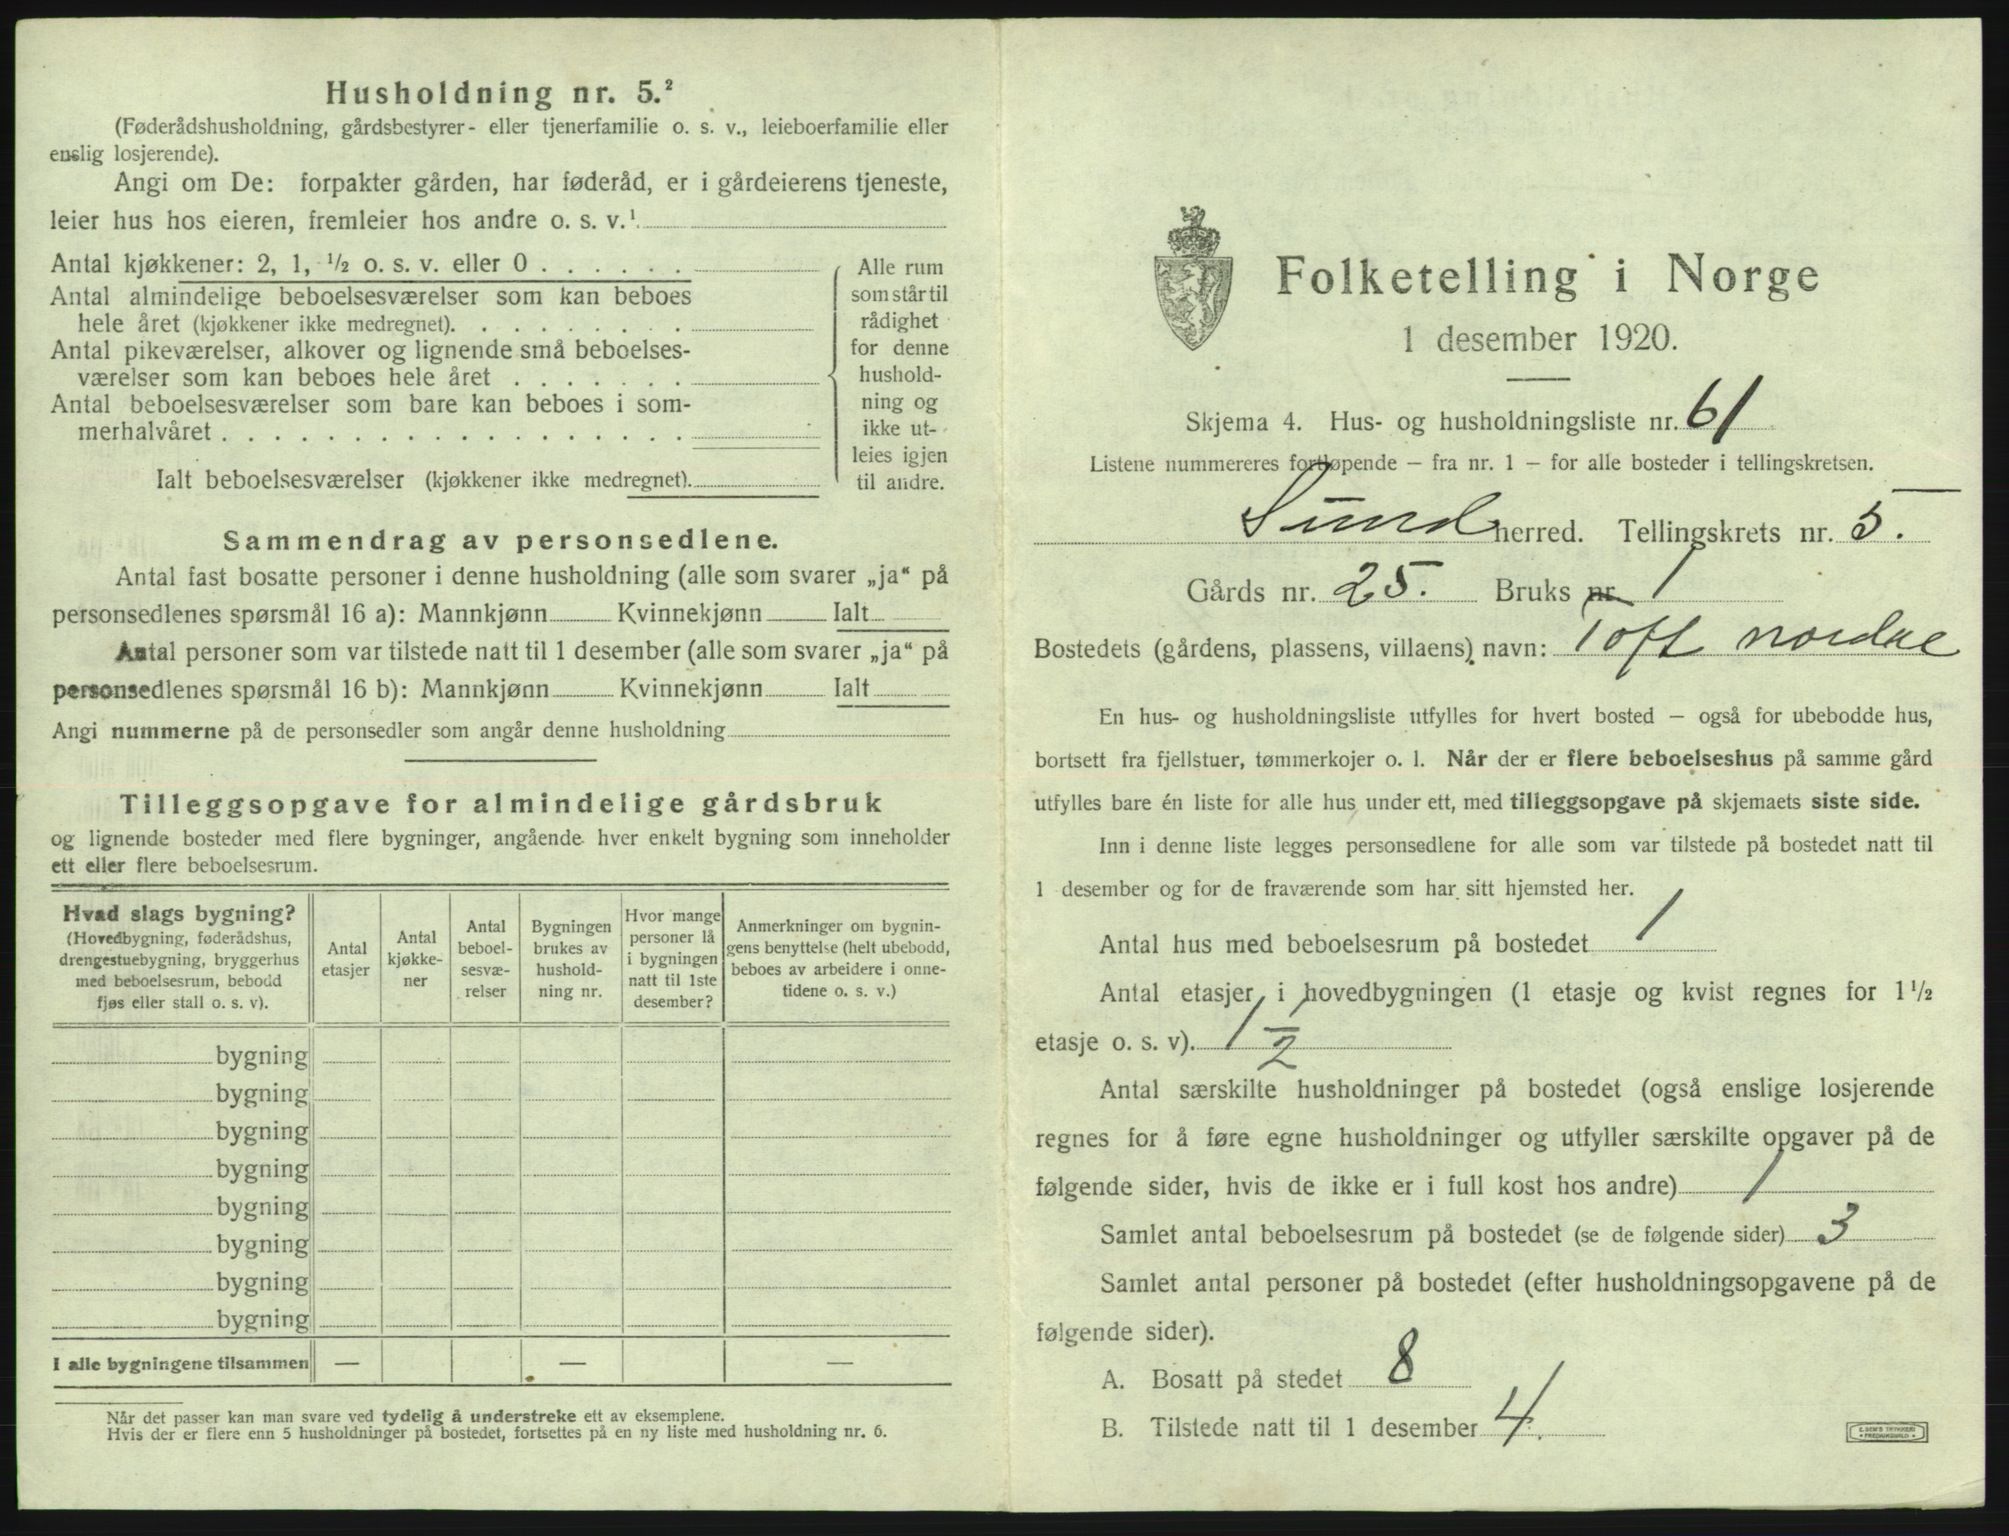 Husholdning nr. 5.²
(Føderådshusholdning, gårdsbestyrer- eller tjenerfamilie o. s. v., leieboerfamilie eller
enslig losjerende).
Angi om De: forpakter gården, har føderåd, er i gårdeierens tjeneste,
leier hus hos eieren, fremleier hos andre o. s. v.¹
Antal kjøkkener: 2, 1, ½ o. s. v. eller 0
Antal almindelige beboelsesværelser som kan beboes
hele året (kjøkkener ikke medregnet).
Antal pikeværelser, alkover og lignende små beboelses-
værelser som kan beboes hele året
Antal beboelsesværelser som bare kan beboes i som-
merhalvåret
Ialt beboelsesværelser (kjøkkener ikke medregnet).
Alle rum
som står til
rådighet
for denne
hushold-
ning og
ikke ut-
leies igjen
til andre.
Sammendrag av personsedlene.
Antal fast bosatte personer i denne husholdning (alle som svarer „ja“ på
personsedlenes spørsmål 16 a): Mannkjønn Kvinnekjønn Ialt
Antal personer som var tilstede natt til 1 desember (alle som svarer „ja“ på
personsedlenes spørsmål 16 b): Mannkjønn Kvinnekjønn Ialt
Angi nummerne på de personsedler som angår denne husholdning
Tilleggsopgave for almindelige gårdsbruk
og lignende bosteder med flere bygninger, angående hver enkelt bygning som inneholder
ett eller flere beboelsesrum.
Hvad slags bygning?
(Hovedbygning, føderådshus,
drengestuebygning, bryggerhus
med beboelsesrum, bebodd
fjøs eller stall o. s. v).
Antal
etasjer
Antal
kjøkke-
ner
Antal
beboel-
sesvæ-
relser
Bygningen
brukes av
hushold-
ning nr.
Hvor mange
personer lå
i bygningen
natt til 1ste
desember?
Anmerkninger om bygnin-
gens benyttelse (helt ubebodd,
beboes av arbeidere i onne-
tidene o. s. v.)
bygning
bygning
bygning
bygning
bygning
bygning
bygning
bygning
I alle bygningene tilsammen — — —
Når det passer kan man svare ved tydelig å understreke ett av eksemplene.
Hvis der er flere enn 5 husholdninger på bostedet, fortsettes på en ny liste med husholdning nr. 6.
Folketelling i Norge
1 desember 1920.
Skjema 4. Hus- og husholdningsliste nr. 61
Listene nummereres fortløpende — fra nr. 1 — for alle bosteder i tellingskretsen.
Sund herred. Tellingskrets nr. 5.
Gårds nr. 25. Bruks nr. 1
Bostedets (gårdens, plassens, villaens) navn: Toft nordre
En hus- og husholdningsliste utfylles for hvert bosted — også for ubebodde hus,
bortsett fra fjellstuer, tømmerkojer o. l. Når der er flere beboelseshus på samme gård
utfylles bare én liste for alle hus under ett, med tilleggsopgave på skjemaets siste side.
Inn i denne liste legges personsedlene for alle som var tilstede på bostedet natt til
1 desember og for de fraværende som har sitt hjemsted her.
Antal hus med beboelsesrum på bostedet 1
Antal etasjer i hovedbygningen (1 etasje og kvist regnes for 1½
etasje o. s. v). 1 1/2
Antal særskilte husholdninger på bostedet (også enslige losjerende
regnes for å føre egne husholdninger og utfyller særskilte opgaver på de
følgende sider, hvis de ikke er i full kost hos andre) 1
Samlet antal beboelsesrum på bostedet (se de følgende sider) 3
Samlet antal personer på bostedet (efter husholdningsopgavene på de
følgende sider).
A. Bosatt på stedet 8
B. Tilstede natt til 1 desember 4.